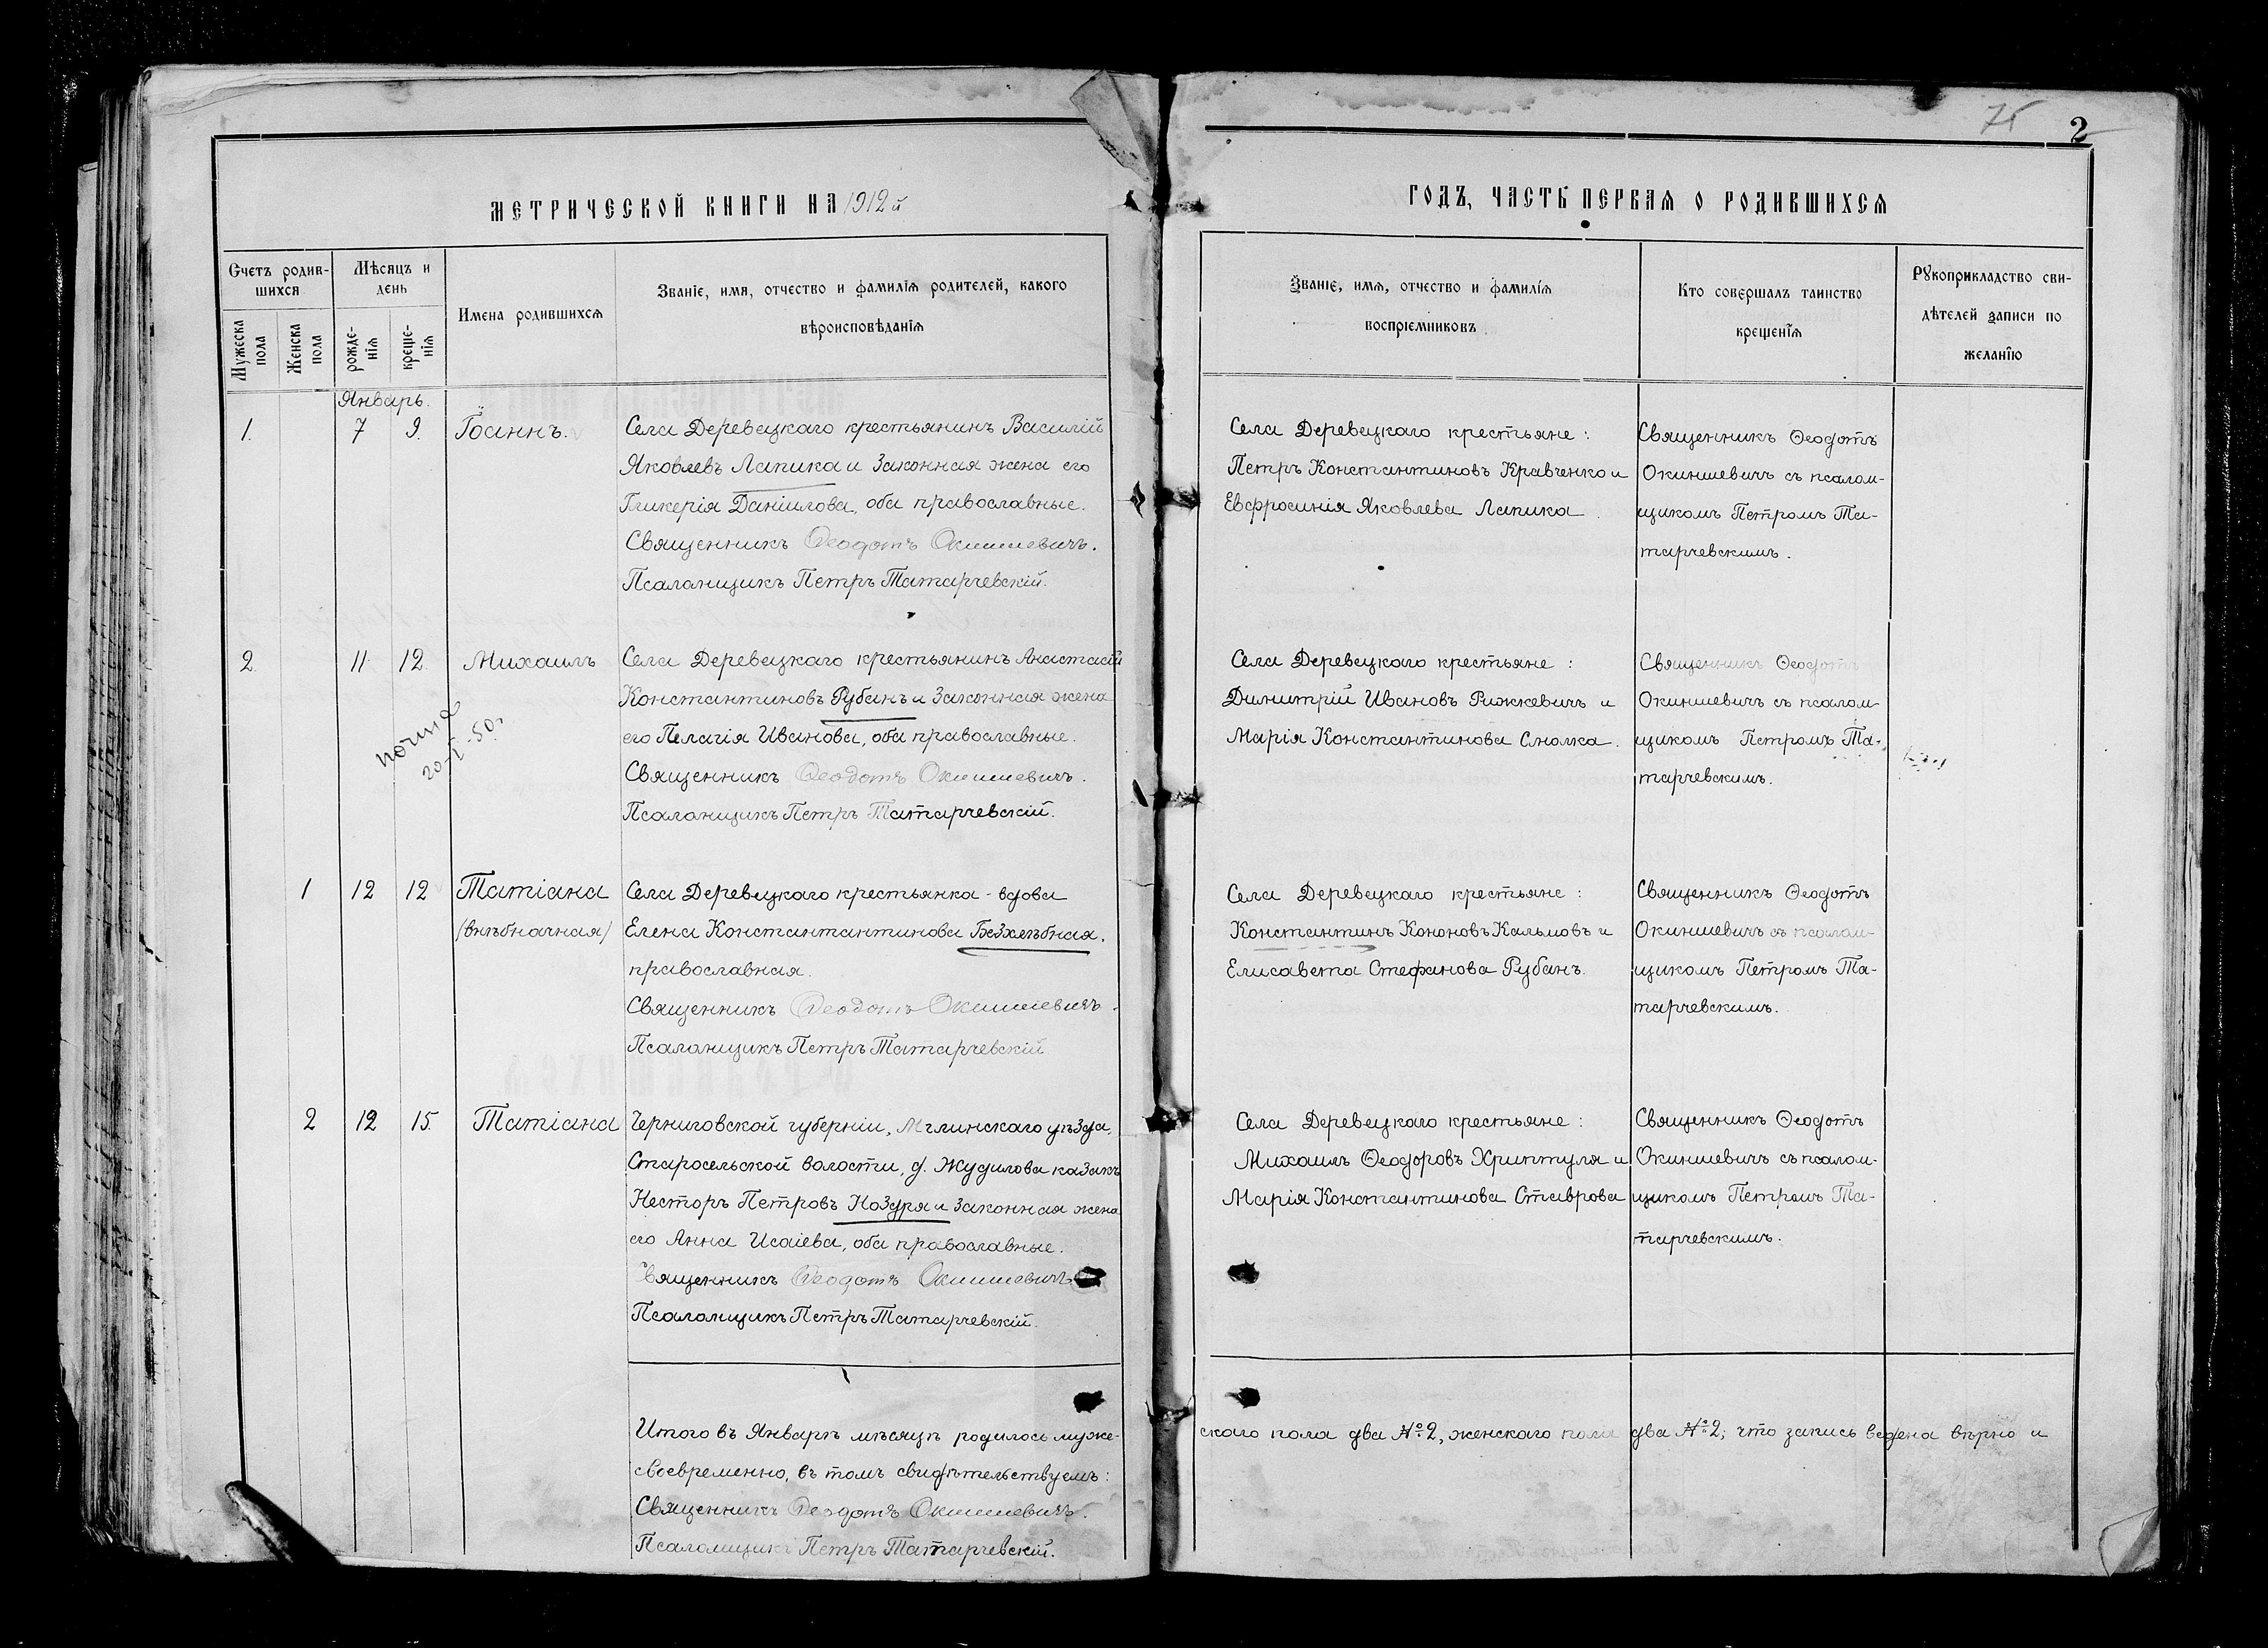 75
2
МЕТРИЧЕСКОЙ КНИГИ НА 1912й
ГОДЪ, ЧАСТЬ ПЕРВАЯ О РОДИВШИХСЯ
Счетъ родив-
шихся
Мужеска
пола
Женска
пола
Мѣсяцъ и
день
рожде-
нія
креще-
нія
Имена родившихся
Званіе, имя, отчество и фамилія родителей, какого
вѣроисповѣданія
Званіе, имя, отчество и фамилія
воспріемниковъ
Кто совершалъ таинство
крещенія
Рукоприкладство сви-
дѣтелей записи по
желанію
Январь.
1. 7 9. Іоаннъ.
Села Деревецкаго крестьянинъ Василій
Яковлевъ Лапика и законная жена его
Гликерія Даніилова, оба православные.
Священникъ Ѳеодотъ Окиншевичъ.
Псаломщикъ Петръ Татарчевскій.
Села Деревецкаго крестьяне:
Петръ Константиновъ Кравченко и
Евфросинія Яковлева Лапика
Священникъ Ѳеодотъ
Окиншевичъ съ псалом-
щикомъ Петромъ Та-
тарчевскимъ.
2. 11 12. Михаилъ
20-I-50г
Села Деревецкаго крестьянинъ Анастасій
Константиновъ Рубанъ и законная жена
его Пелагія Иванова, оба православные.
Священникъ Ѳеодотъ Окиншевичъ.
Псаломщикъ Петръ Татарчевскій.
Села Деревецкаго крестьяне:
Димитрій Ивановъ Рижкевичъ и
Марія Константинова Смолка.
Священникъ Ѳеодотъ
Окиншевичъ съ псалом-
щикомъ Петромъ Та-
тарчевскимъ.
1 12 12 Татіана
(внѣбрачная)
Села Деревецкаго крестьянка-вдова
Елена Константантинова Безхлѣбная.
православная.
Священникъ Ѳеодотъ Окиншевичъ.
Псаломщикъ Петръ Татарчевскій
Села Деревецкаго крестьяне:
Константинъ Кононовъ Кальмовъ и
Елисавета Стефанова Рубанъ.
Священникъ Ѳеодотъ
Окиншевичъ съ псалом-
щикомъ Петромъ Та-
тарчевскимъ.
2 12 15. Татіана
Черниговской губерніи, Мглинскаго уѣзда,
Старосельской волости, д. Жудилова казакъ
Несторъ Петровъ Козуря и законная жена
его Анна Исаіева, оба православные.
Священникъ Ѳеодотъ Окиншевичъ
Псаломщикъ Петръ Татарчевскій.
Села Деревецкаго крестьяне:
Михаилъ Ѳеодоровъ Хриптуля и
Марія Константинова Ставрова
Священникъ Ѳеодотъ
Окиншевичъ съ псалом-
щикомъ Петромъ Та-
тарчевскимъ.
Итого въ Январѣ мѣсяцѣ родилось муже-
скаго пола два №2, женскаго пола два №2; что запись ведена вѣрно и
своевременно, въ томъ свидѣтельствуемъ:
Священникъ Ѳеодотъ Окиншевичъ.
Псаломщикъ Петръ Татарчевскій.